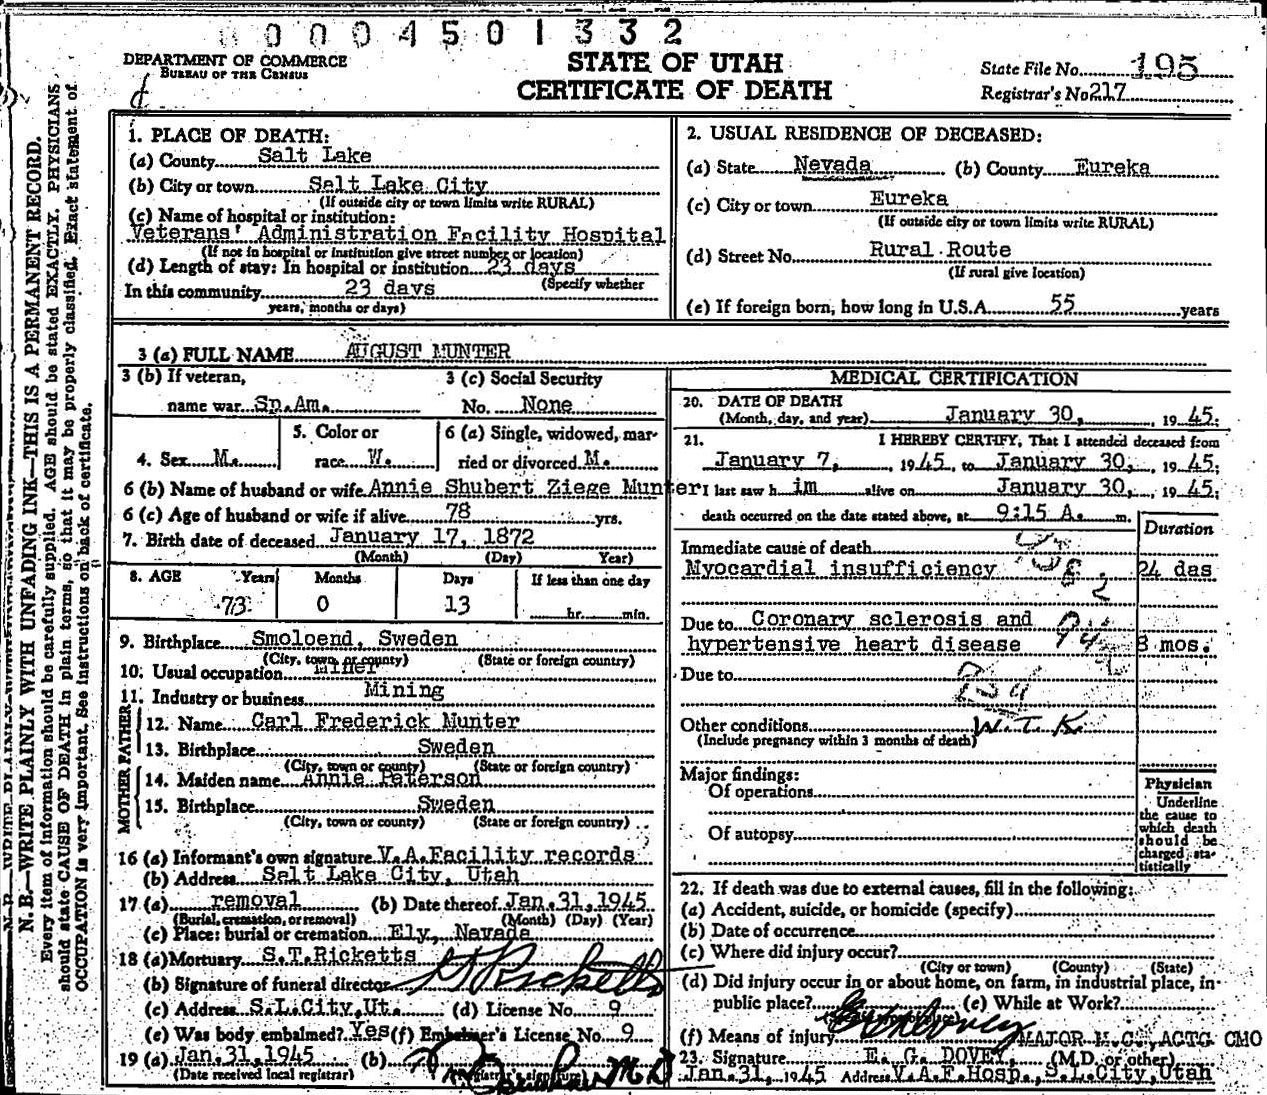 0004501332
DEPARTMENT OF COMMERCE
BUREAU OF THE CENSUS
STATE OF UTAH
CERTIFICATE OF DEATH
State File No. 195
Registrar's No. 217
N. B.—WRITE PLAINLY WITH UNFADING INK—THIS IS A PERMANENT RECORD.
Every item of information should be carefully supplied. AGE should be stated EXACTLY. PHYSICIANS
should state CAUSE OF DEATH in plain terms, so that it may be properly classified. Exact statement of
OCCUPATION is very important. See instructions on back of certificate.
1. PLACE OF DEATH:
(a) County Salt Lake
(b) City or town Salt Lake City
(If outside city or town limits write RURAL)
(c) Name of hospital or institution:
Veterans' Administration Facility Hospital
(If not in hospital or institution give street number or location)
(d) Length of stay: In hospital or institution 23 days
(Specify whether
In this community 23 days
years, months or days)
2. USUAL RESIDENCE OF DECEASED:
(a) State Nevada (b) County Eureka
(c) City or town Eureka
(If outside city or town limits write RURAL)
(d) Street No. Rural Route
(If rural give location)
(e) If foreign born, how long in U.S.A. 55 years
3 (a) FULL NAME AUGUST MUNTER
3 (b) If veteran,
name war Sp.Am.
3 (c) Social Security
No. None
4. Sex M.
5. Color or
race W.
6 (a) Single, widowed, mar-
ried or divorced M.
6 (b) Name of husband or wife Annie Shubert Ziege Munter
6 (c) Age of husband or wife if alive 78 yrs.
7. Birth date of deceased January 17, 1872
(Month) (Day) Year)
8. AGE Years Months Days If less than one day
73 0 13 hr. min.
9. Birthplace Smoloend, Sweden
(City, town or county) (State or foreign country)
10. Usual occupation Miner
11. Industry or business Mining
FATHER
12. Name Carl Frederick Munter
13. Birthplace Sweden
(City, town or county) (State or foreign country)
MOTHER
14. Maiden name Annie Peterson
15. Birthplace Sweden
(City, town or county) (State or foreign country)
16 (a) Informant's own signature V.A.Facility records
(b) Address Salt Lake City, Utah
17 (a) removal (b) Date thereof Jan.31,1945
(Burial, cremation, or removal) (Month) (Day) (Year)
(c) Place: burial or cremation Ely, Nevada
18 (a) Mortuary S.T.Ricketts
(b) Signature of funeral director Ricketts
(c) Address S.L.City,Ut. (d) License No. 9
(e) Was body embalmed? Yes (f) Embalmer's License No. 9
19 (a) Jan.31,1945 (b) M.D.
(Date received local registrar) (Registrar's signature)
MEDICAL CERTIFICATION
20. DATE OF DEATH
(Month, day, and year) January 30, 19 45.
21. I HEREBY CERTIFY, That I attended deceased from
January 7, 1945 to January 30, 19 45;
I last saw h im alive on January 30, 19 45;
death occurred on the date stated above, at 9:15 A. m.
Duration
Immediate cause of death
Myocardial insufficiency 24 das
Due to Coronary sclerosis and
hypertensive heart disease 8 mos.
Due to
Other conditions W.T.K.
(Include pregnancy within 3 months of death)
Major findings:
Of operations
Of autopsy
Physician
Underline
the cause to
which death
should be
charged sta-
tistically
22. If death was due to external causes, fill in the following:
(a) Accident, suicide, or homicide (specify)
(b) Date of occurrence
(c) Where did injury occur?
(City or town) (County) (State)
(d) Did injury occur in or about home, on farm, in industrial place, in
public place? (e) While at Work?
(f) Means of injury MAJOR M.C., ACTG CMO
23. Signature E. G. DOVEY, (M.D. or other)
Jan.31, 1945 Address V.A.F.Hosp., S.L.City,Utah